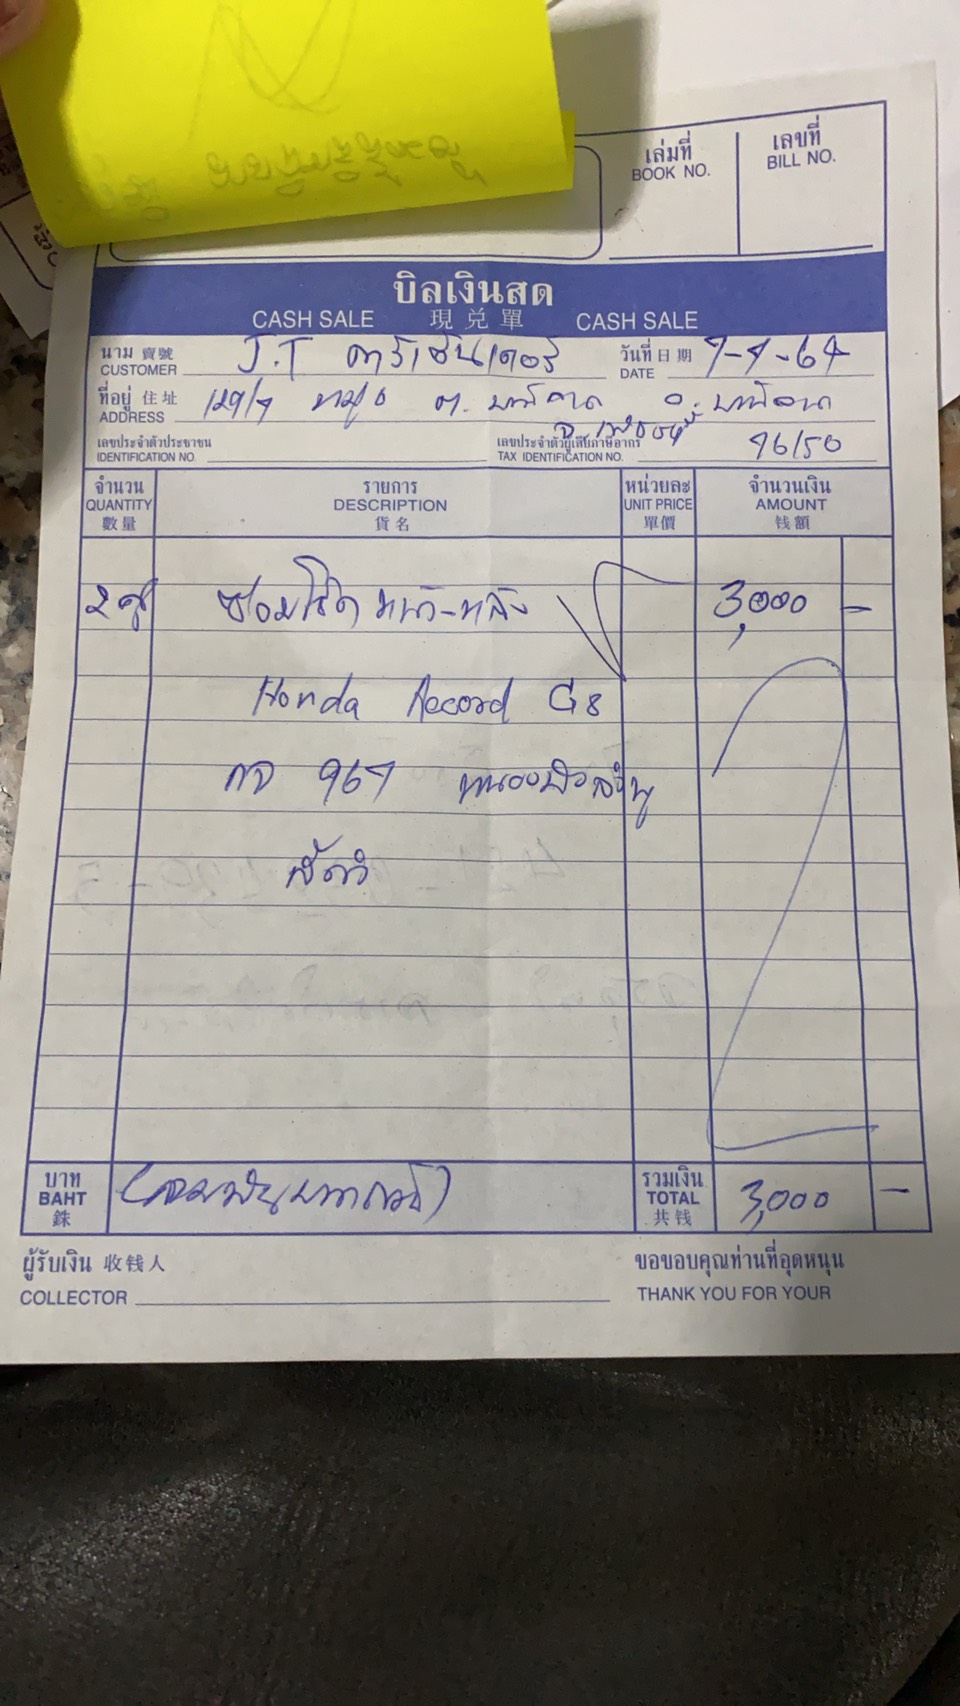 เล่มที่
BOOK NO.
เลขที่
BILL NO.
บิลเงินสด
CASH SALE 現兑單 CASH SALE
นาม 賣號
CUSTOMER J.T คาร์เซ็นเตอร์
วันที่ 日期
DATE 7-7-64
ที่อยู่ 住址
ADDRESS 129/7 หมู่ 6 ต. อ.
เลขประจำตัวประชาชน
IDENTIFICATION NO.
เลขประจำตัวผู้เสียภาษีอากร
TAX IDENTIFICATION NO. 76150
จำนวน
QUANTITY
數量
รายการ
DESCRIPTION
貨名
หน่วยละ
UNIT PRICE
單價
จำนวนเงิน
AMOUNT
钱额
2 คู่ ซ่อมโช๊ค หน้า-หลัง 3,000 -
Honda Accord G8
กจ 967 หนองบัวลำภู
บาท
BAHT
銖
(สามพันบาทถ้วน)
รวมเงิน
TOTAL
共钱
3,000 -
ผู้รับเงิน 收钱人
COLLECTOR
ขอขอบคุณท่านที่อุดหนุน
THANK YOU FOR YOUR